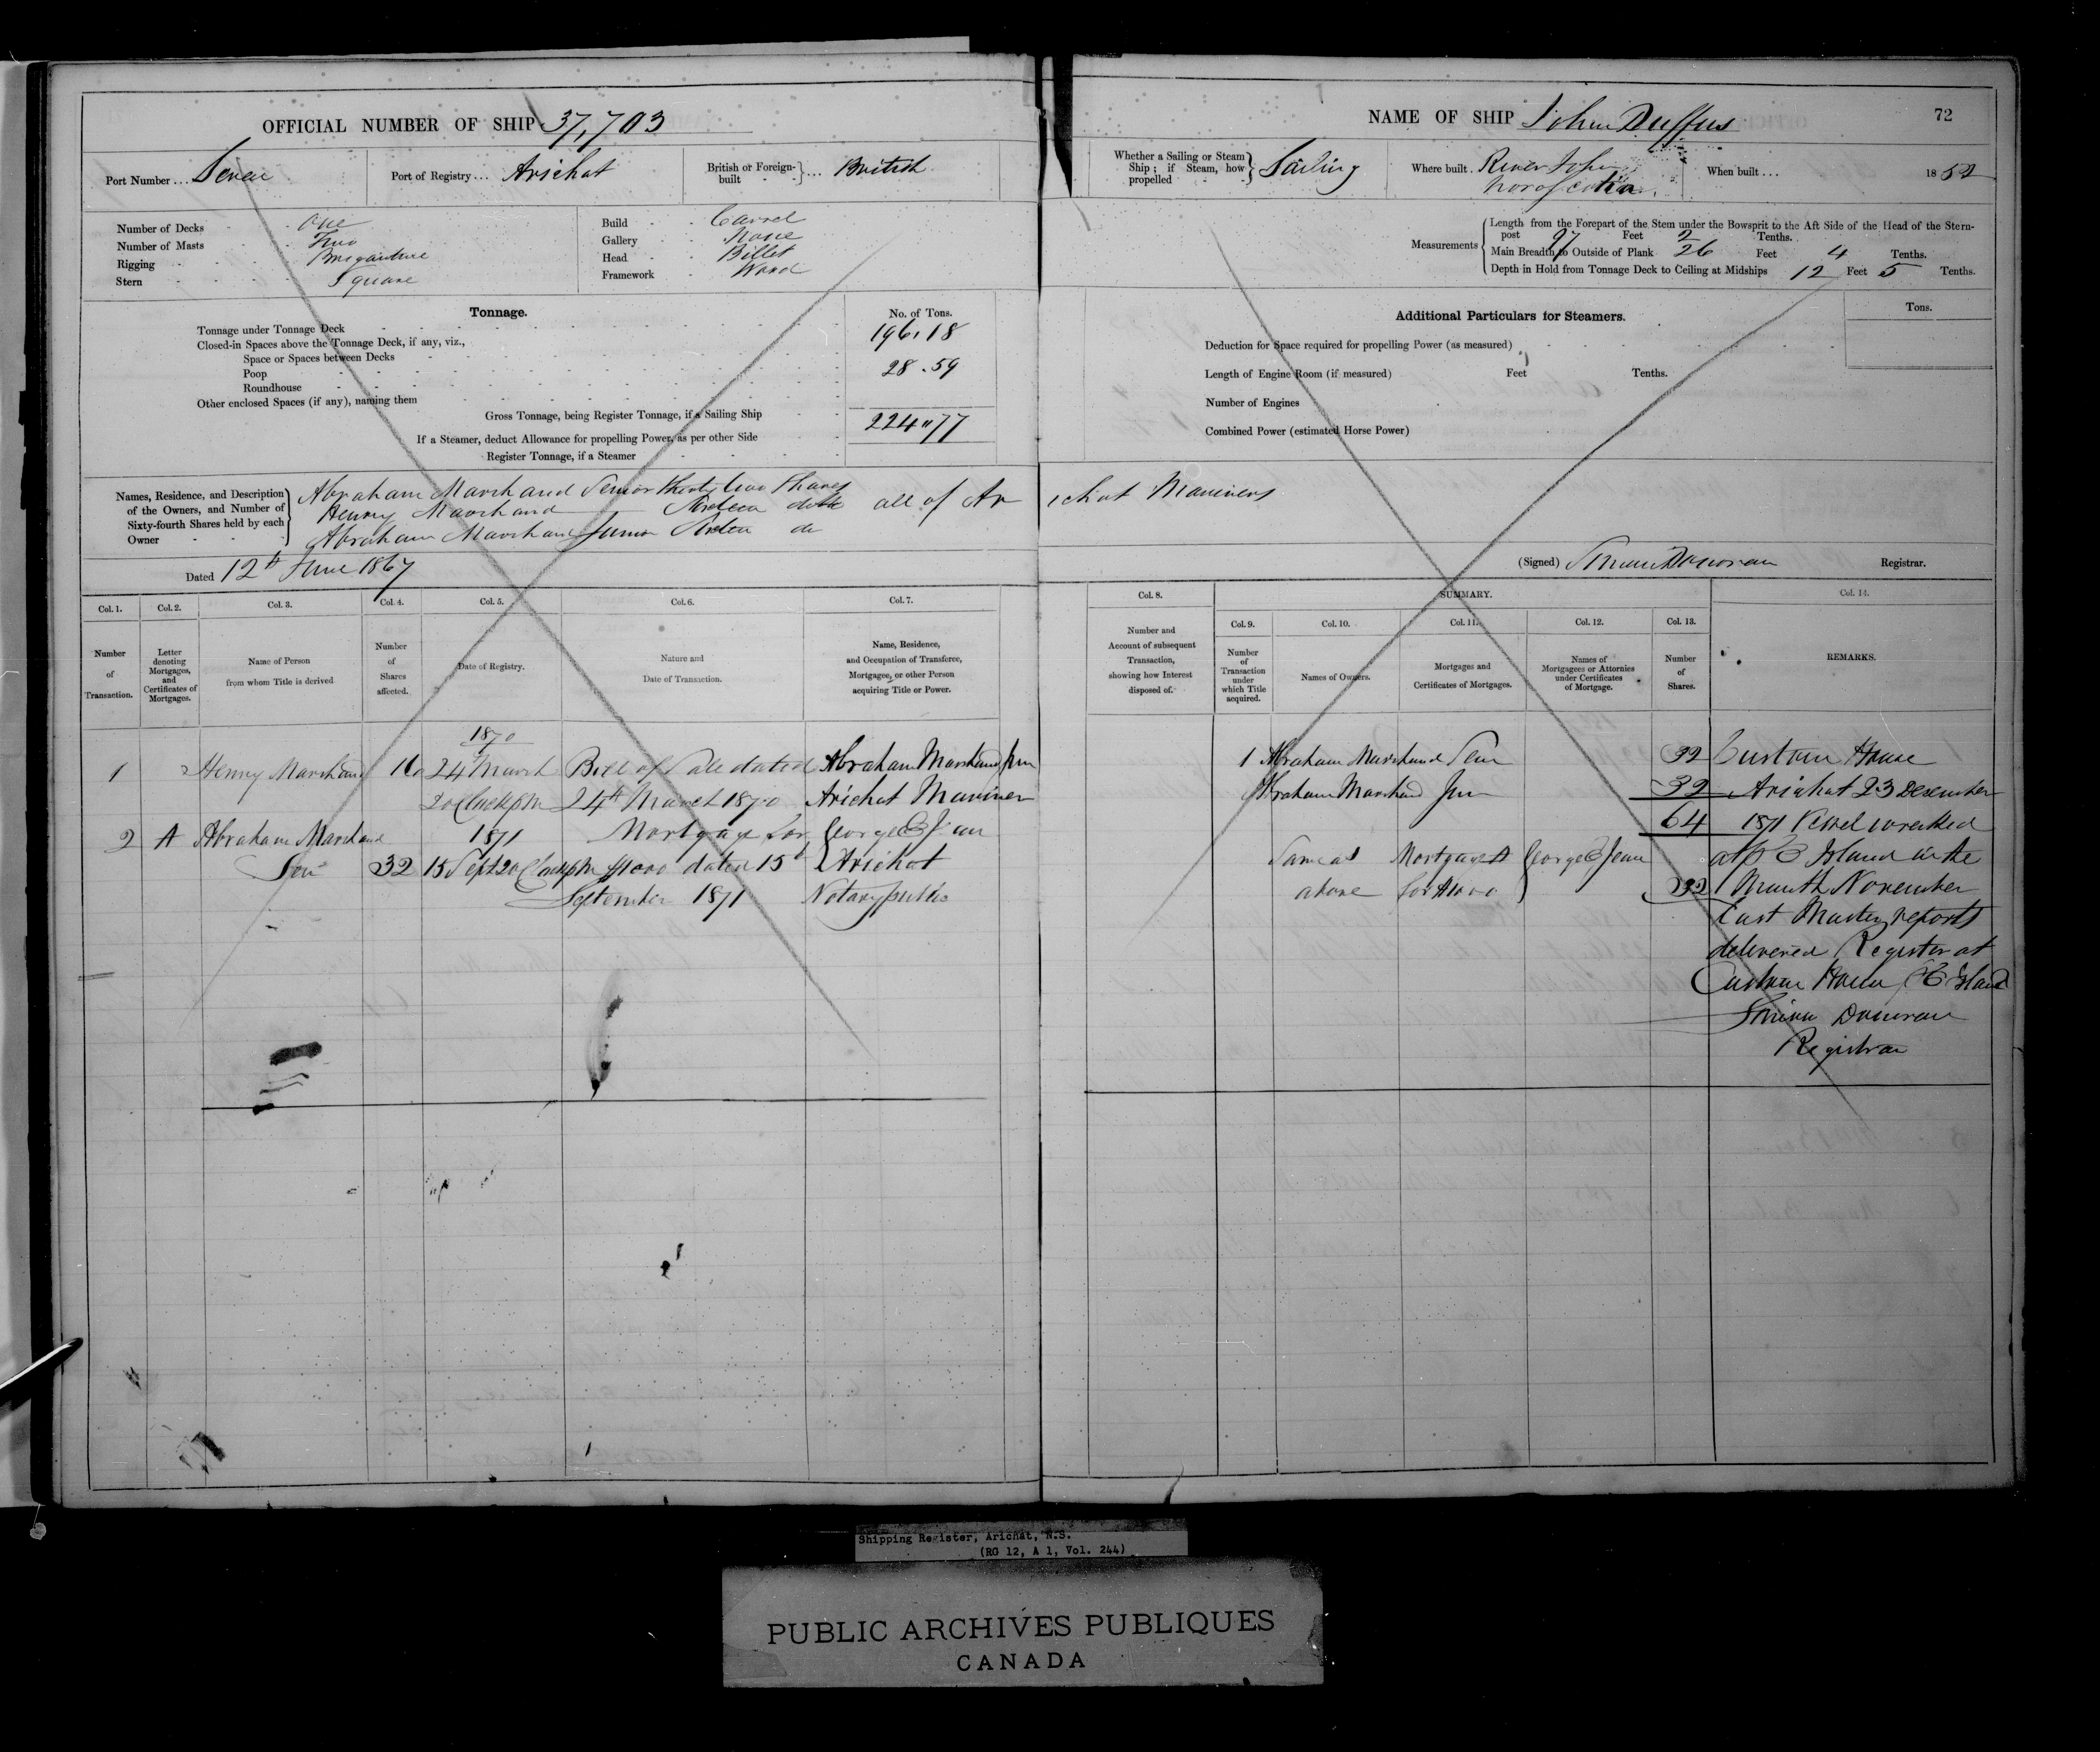 OFFICIAL NUMBER OF SHIP 37,703
Port Number ... Seven
Port of Registry ... Arichat
British or Foreign-built } ... British
Number of Decks One
Number of Masts Two
Rigging Brigantine
Stern Square
Build Carvel
Gallery None
Head Billet
Framework Wood
Tonnage.
No. of Tons.
Tonnage under Tonnage Deck 196.18
Closed-in Spaces above the Tonnage Deck, if any, viz.,
Space or Spaces between Decks
Poop 28.59
Roundhouse
Other enclosed Spaces (if any), naming them
Gross Tonnage, being Register Tonnage, if a Sailing Ship 224"77
If a Steamer, deduct Allowance for propelling Power, as per other Side
Register Tonnage, if a Steamer
Names, Residence, and Description of the Owners, and Number of Sixty-fourth Shares held by each Owner
Abraham Marchand Senior thirty two Shares
Henry Marchand Sixteen ditto all of Arichat Mariners
Abraham Marchand Junior Sixteen do
Dated 12th June 1867
Col. 1. Col. 2. Col. 3. Col. 4. Col. 5. Col. 6. Col. 7.
Number of Transaction.
Letter denoting Mortgages, and Certificates of Mortgages.
Name of Person from whom Title is derived
Number of Shares affected.
Date of Registry.
Nature and Date of Transaction.
Name, Residence, and Occupation of Transferee, Mortgagee, or other Person acquiring Title or Power.
1870
1 Henry Marchand 16 24 March Bill of Sale dated Abraham Marchand Jun
2 oClock pm 24th March 1870 Arichat Mariner
2 A Abraham Marchand 1871 Mortgage for George E Jean
Sen 32 15 Sept 2 oClock pm $1000 dated 15th Arichat
September 1871 Notary public
NAME OF SHIP John Duffus
72
Whether a Sailing or Steam Ship; if Steam, how propelled } Sailing
Where built River John
Nova Scotia
When built ... 1852
Measurements
Length from the Forepart of the Stem under the Bowsprit to the Aft Side of the Head of the Stern-
post 97 Feet 2 Tenths.
Main Breadth to Outside of Plank 26 Feet 4 Tenths.
Depth in Hold from Tonnage Deck to Ceiling at Midships 12 Feet 5 Tenths.
Additional Particulars for Steamers.
Tons.
Deduction for Space required for propelling Power (as measured)
Length of Engine Room (if measured) Feet Tenths.
Number of Engines
Combined Power (estimated Horse Power)
(Signed) Donovan Registrar.
Col. 8.
Number and Account of subsequent Transaction, showing how Interest disposed of.
SUMMARY.
Col. 9. Col. 10. Col. 11. Col. 12. Col. 13. Col. 14.
Number of Transaction under which Title acquired.
Names of Owners.
Mortgages and Certificates of Mortgages.
Names of Mortgagees or Attornies under Certificates of Mortgage.
Number of Shares.
REMARKS.
1 Abraham Marchand Senr 32
Abraham Marchand Jun 32
64
Same as above Mortgage A for $1000 George E Jean 32
Custom House
Arichat 23 December
1871 Vessel wrecked
at P E Island in the
Month November
last Master reports
delivered Register at
Custom House P E Island
Donovan
Registrar
Shipping Register, Arichat, N.S.
(RG 12, A 1, Vol. 244)
PUBLIC ARCHIVES PUBLIQUES
CANADA